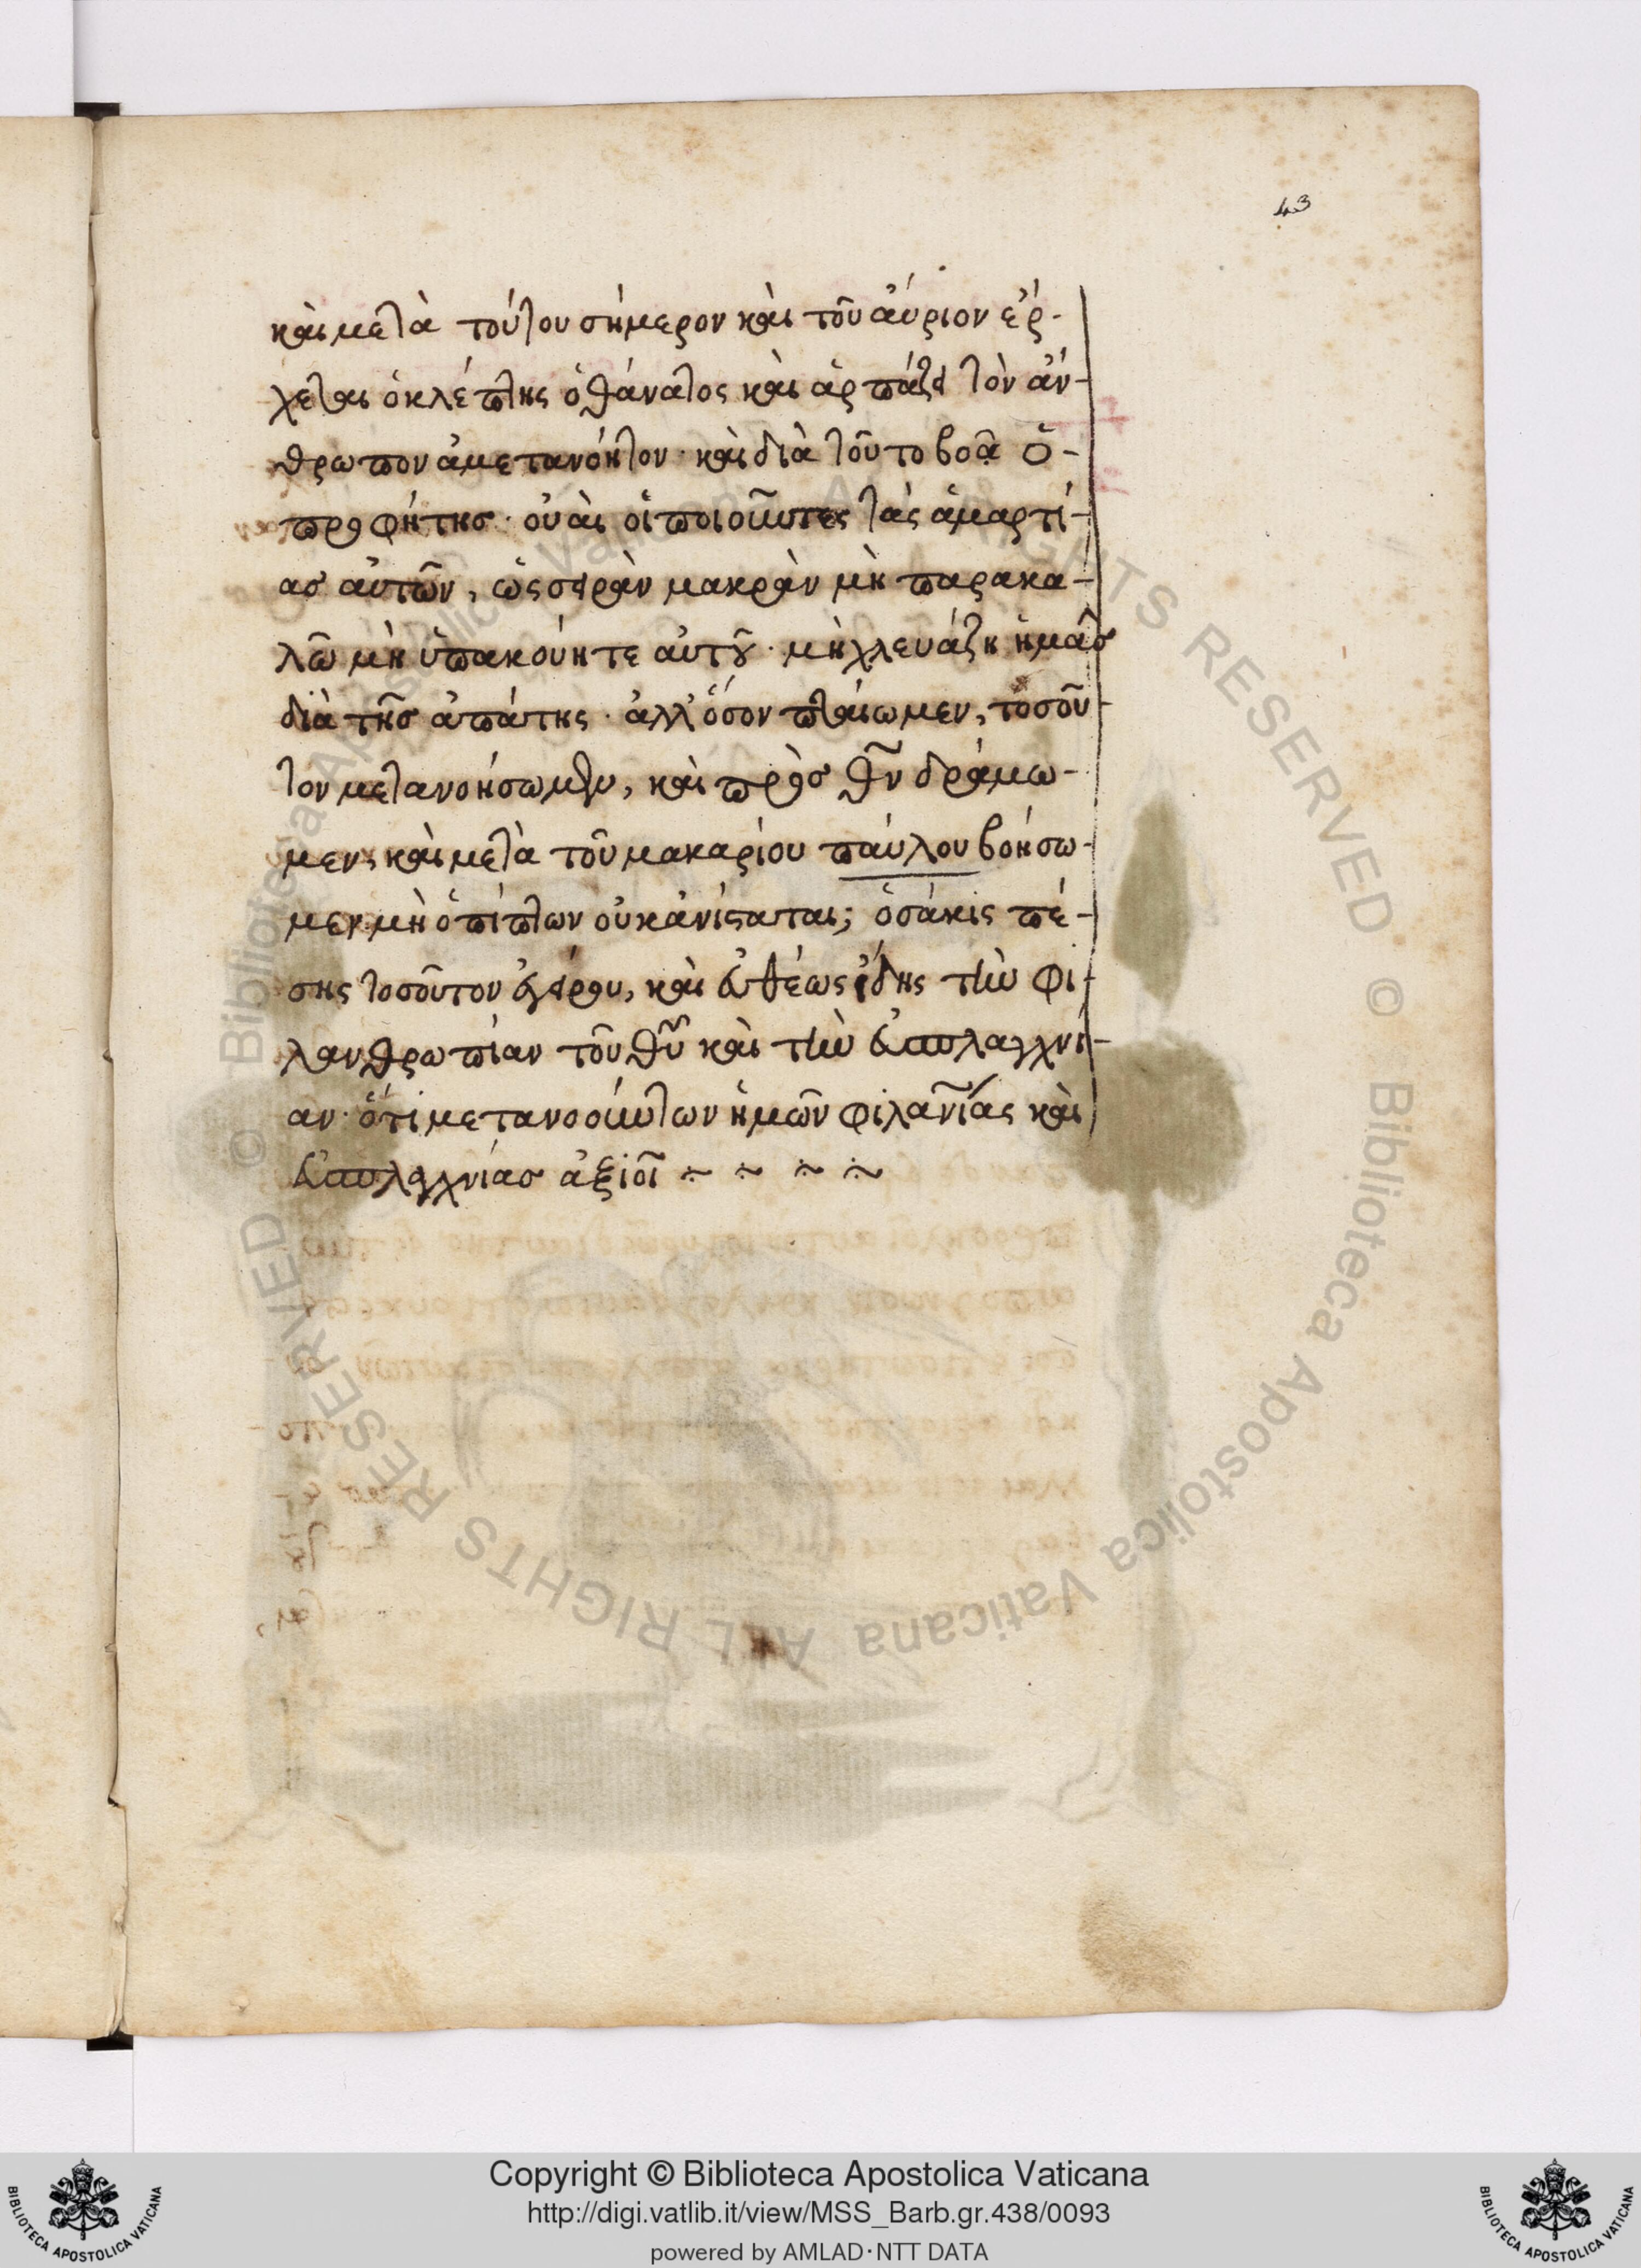 43
καὶ μετὰ τούτου σήμερον καὶ τοῦ ἀύριον ἐρ-
χεται ὁ κλέπτης ὁ θάνατος καὶ ἁρπάζει τὸν ἄν-
θρωπον ἀμετανόητον· καὶ διὰ τοῦτο βοᾶ ὁ-
προφήτης· οὐαὶ οἱ ποιοῦντες τὰς ἁμαρτί-
ας αὐτῶν, ὡς σειρὰν μακρὰν μὴ παρακα-
λῶ μὴ ὑπακούητε αὐτοῦ· μὴ χλευάζη ἡμᾶς
διὰ τῆς ἀπάτης· ἀλλ' ὅσον πταίωμεν, τοσοῦ-
τον μετανοήσωμεν, καὶ πρὸς θν δράμω-
μεν, καὶ μετὰ τοῦ μακαρίου παύλου βοήσω-
μεν μὴ ὁ πίπτων οὐκ ἀνίσταται; ὁσάκις πέ-
σης τοσοῦτον ἐγείρου, καὶ εὐθέως ἴδης τὴν φι-
λανθρωπίαν τοῦ θυ καὶ τὴν εὐσπλαγχνί-
αν· ὅτι μετανοούντων ἡμῶν φιλανίας καὶ
εὐσπλαγχνίας ἀξιοῖ
Copyright © Biblioteca Apostolica Vaticana
http://digi.vatlib.it/view/MSS_Barb.gr.438/0093
powered by AMLAD·NTT DATA
BIBLIOTECA APOSTOLICA VATICANA
BIBLIOTECA APOSTOLICA VATICANA
© Biblioteca Apostolica Vaticana ALL RIGHTS RESERVED
© Biblioteca Apostolica Vaticana ALL RIGHTS RESERVED